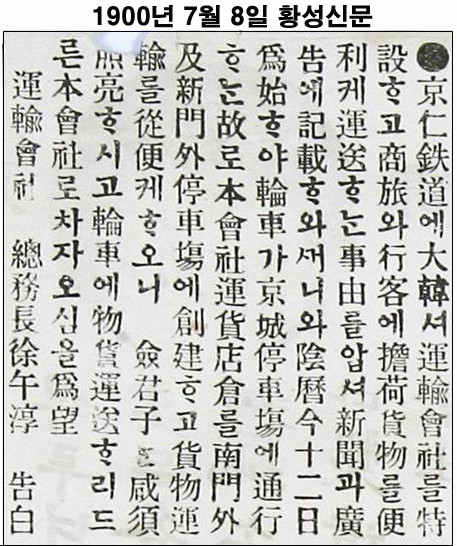 1900년 7월 8일 황성신문
●京仁鉄道에大韓셔運輸會社를特
設ᄒᆞ고商旅와行客에擔荷貨物를便
利케運送ᄒᆞᄂᆞᆫ事由를압셔新聞과廣
告에記載ᄒᆞ와새니와陰曆今十二日
爲始ᄒᆞ야輪車가京城停車塲에通行
ᄒᆞᄂᆞᆫ故로本會社運貨店倉를南門外
及新門外停車塲에創建ᄒᆞ고貨物運
輸를從便케ᄒᆞ오니 僉君子ᄂᆞᆫ咸須
照亮ᄒᆞ시고輪車에物貨運送ᄒᆞ리드
른本會社로차자오심을爲望
運輸會社 總務長徐午淳 告白